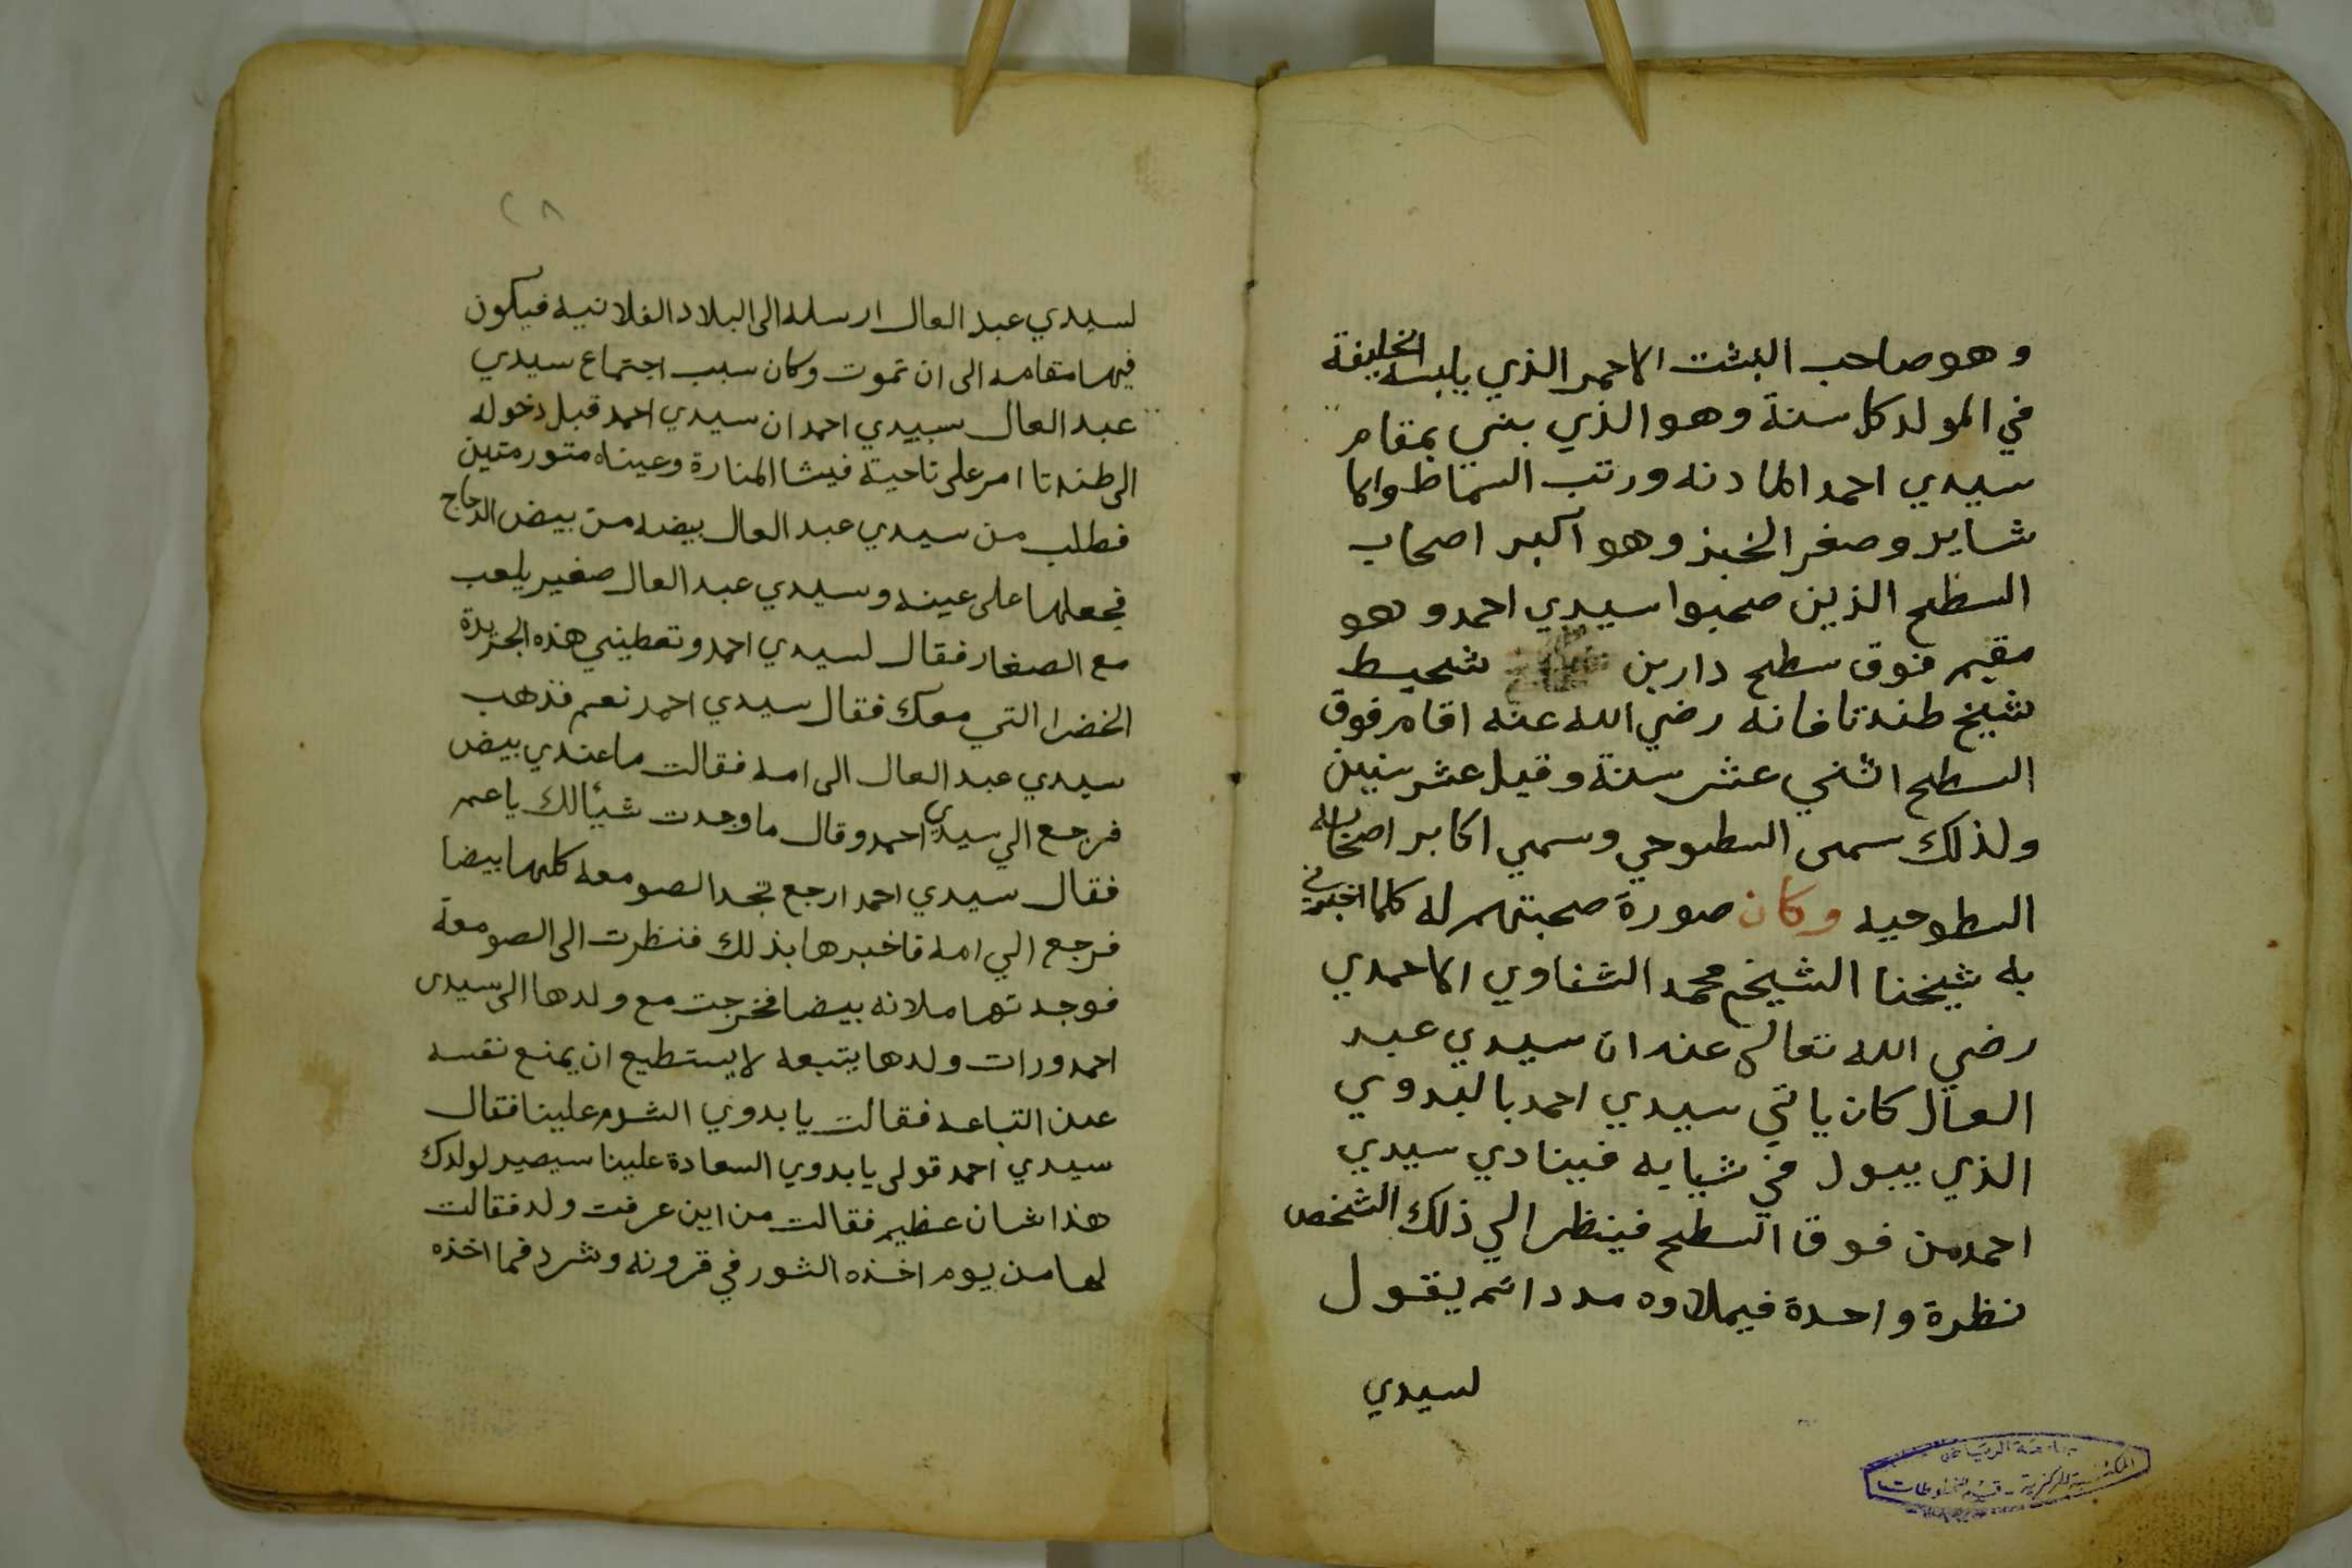 وهو صاحب البشت الاحمر الذي يلبسه الخليفة
في المولد كل سنة وهو الذي بني بمقام
سيدي احمد المادنه ورتب السماط والا
شاير وصغر الخبز وهو اكبر اصحاب
السطح الذين صحبوا سيدي احمد وهو
مقيم فوق سطح دار بن شحيط
شيخ طندتا فانه رضي الله عنه اقام فوق
السطح اثني عشر سنة وقيل عشر سنين
ولذلك سمى السطوحي وسمي اكابر اصحابه
السطوحيه وكان صورة صحبتهم له كما اخبرني
به شيخنا الشيخ محمد الشناوي الاحمدي
رضي الله تعالى عنه ان سيدي عبد
العال كان ياتي سيدي احمد بالبدوي
الذي يبول في ثيابه فينادي سيدي
احمد من فوق السطح فينظر الي ذلك الشخص
نظرة واحدة فيملاوه مددا ثم يقول
لسيدي
جامعة الرياض
المكتبة المركزية - قسم المخطوطات
٢٨
لسيدي عبد العال ارسله الى البلاد الفلانيه فيكون
فيها مقامه الى ان تموت وكان سبب اجتماع سيدي
عبد العال سيدي احمد ان سيدي احمد قبل دخوله
الى طندتا امر على ناحية فيشا المنارة وعيناه متورمتين
فطلب من سيدي عبد العال بيضه من بيض الدجاج
فجعلها على عينه وسيدي عبد العال صغير يلعب
مع الصغار فقال لسيدي احمد وتعطيني هذه الجريدة
الخضرا التي معك فقال سيدي احمد نعم فذهب
سيدي عبد العال الى امه فقالت ما عندي بيض
فرجع الي سيدي احمد وقال ما وجدت شيئا لك يا عم
فقال سيدي احمد ارجع تجد الصومعه كلها بيضا
فرجع الي امه فاخبرها بذلك فنظرت الى الصومعة
فوجدتها ملانه بيضا فخرجت مع ولدها الى سيدى
احمد ورات ولدها يتبعه لا يستطيع ان يمنع نفسه
عن اتباعه فقالت يا بدوي الشوم علينا فقال
سيدي احمد قولى يا بدوي السعادة علينا سيصير لولدك
هذا شان عظيم فقالت من اين عرفت ولد فقالت
لها من يوم اخذه الثور في قرونه وشرد فما اخذه